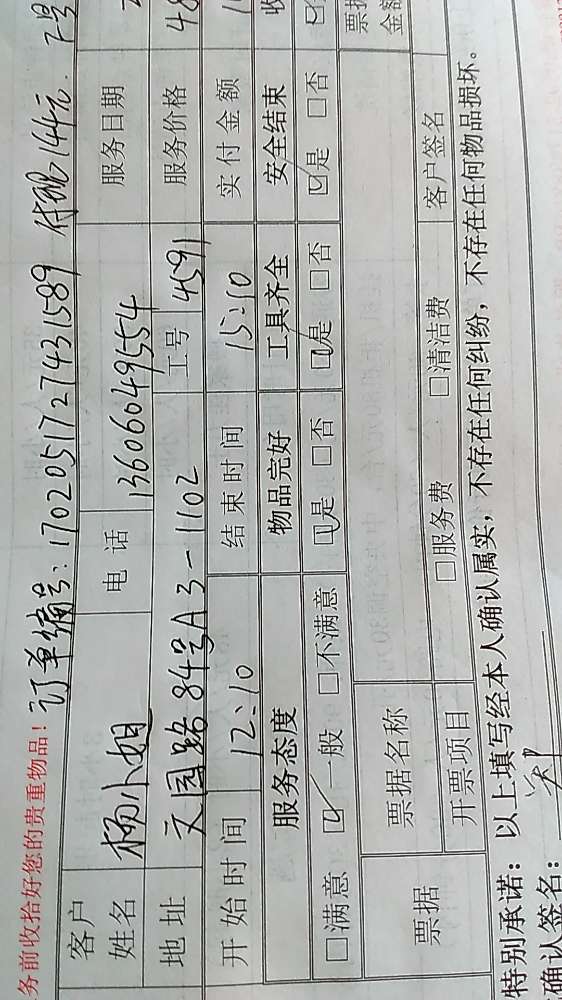 务前收拾好您的贵重物品！ 订单编号：1702051727431589 付现144元.
客户姓名 杨小姐 电话 13606049554 服务日期
地址 文园路84号A3-1102 工号 4591 服务价格 48
开始时间 12:10 结束时间 15:10 实付金额
服务态度 物品完好 工具齐全 安全结束
□满意 ☑一般 □不满意 ☑是 □否 ☑是 □否 ☑是 □否
票据 票据名称 票据金额
开票项目 □服务费 □清洁费 客户签名
特别承诺：以上填写经本人确认属实，不存在任何纠纷，不存在任何物品损坏。
确认签名：